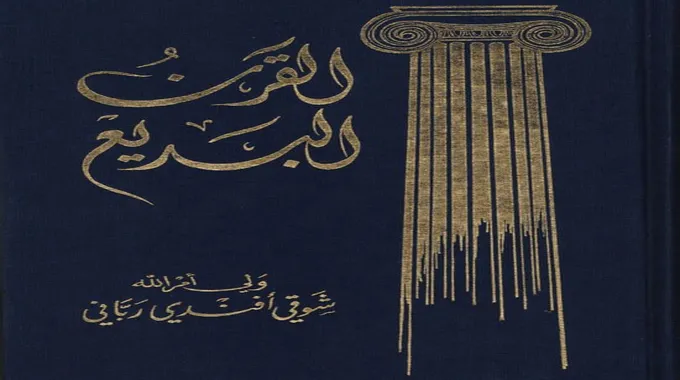 القرنُ
البديع
وَلي أمرالله
شَوقي أفندي رَبَّاني